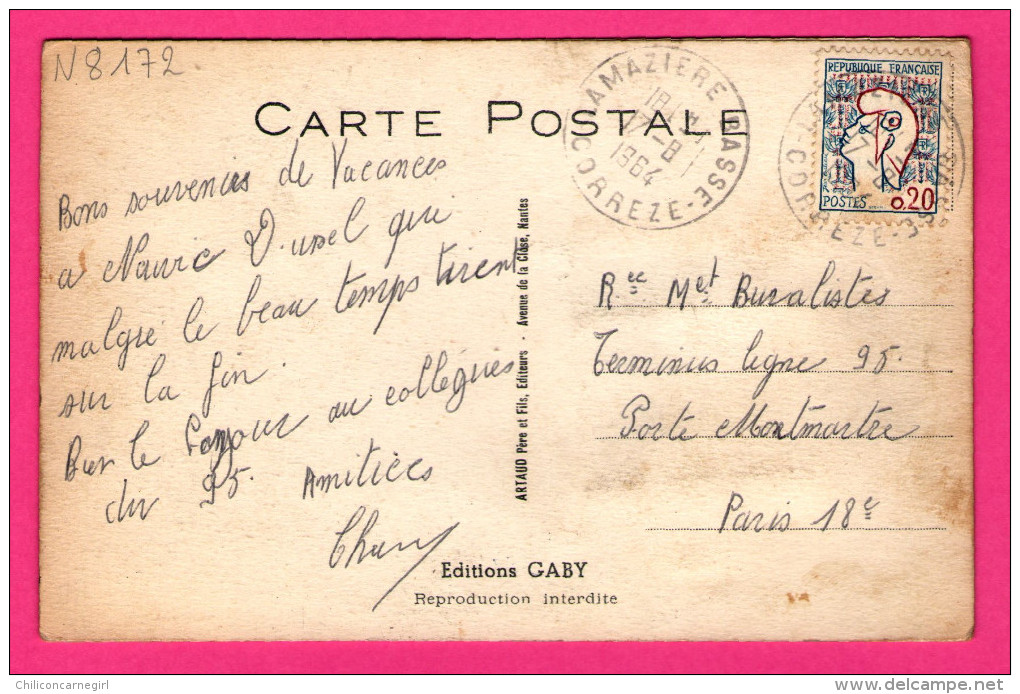 N 8172
CARTE POSTALE
LAMAZIERE BASSE
CORREZE
18 H
7 - 8
1964
REPUBLIQUE FRANÇAISE
POSTES
0,20
Bons souvenirs de Vacances
a Neuvic D'ussel qui
malgré le beau temps tirent
sur la fin.
Bien le Bonjour au collégues
du 95. Amitiées
Rec Met Buralistes
Terminus ligne 95.
Porte Montmartre
Paris 18e
ARTAUD Père et Fils, Editeurs - Avenue de la Close, Nantes
Editions GABY
Reproduction interdite
Chiliconcarnegirl
http://www.delcampe.net